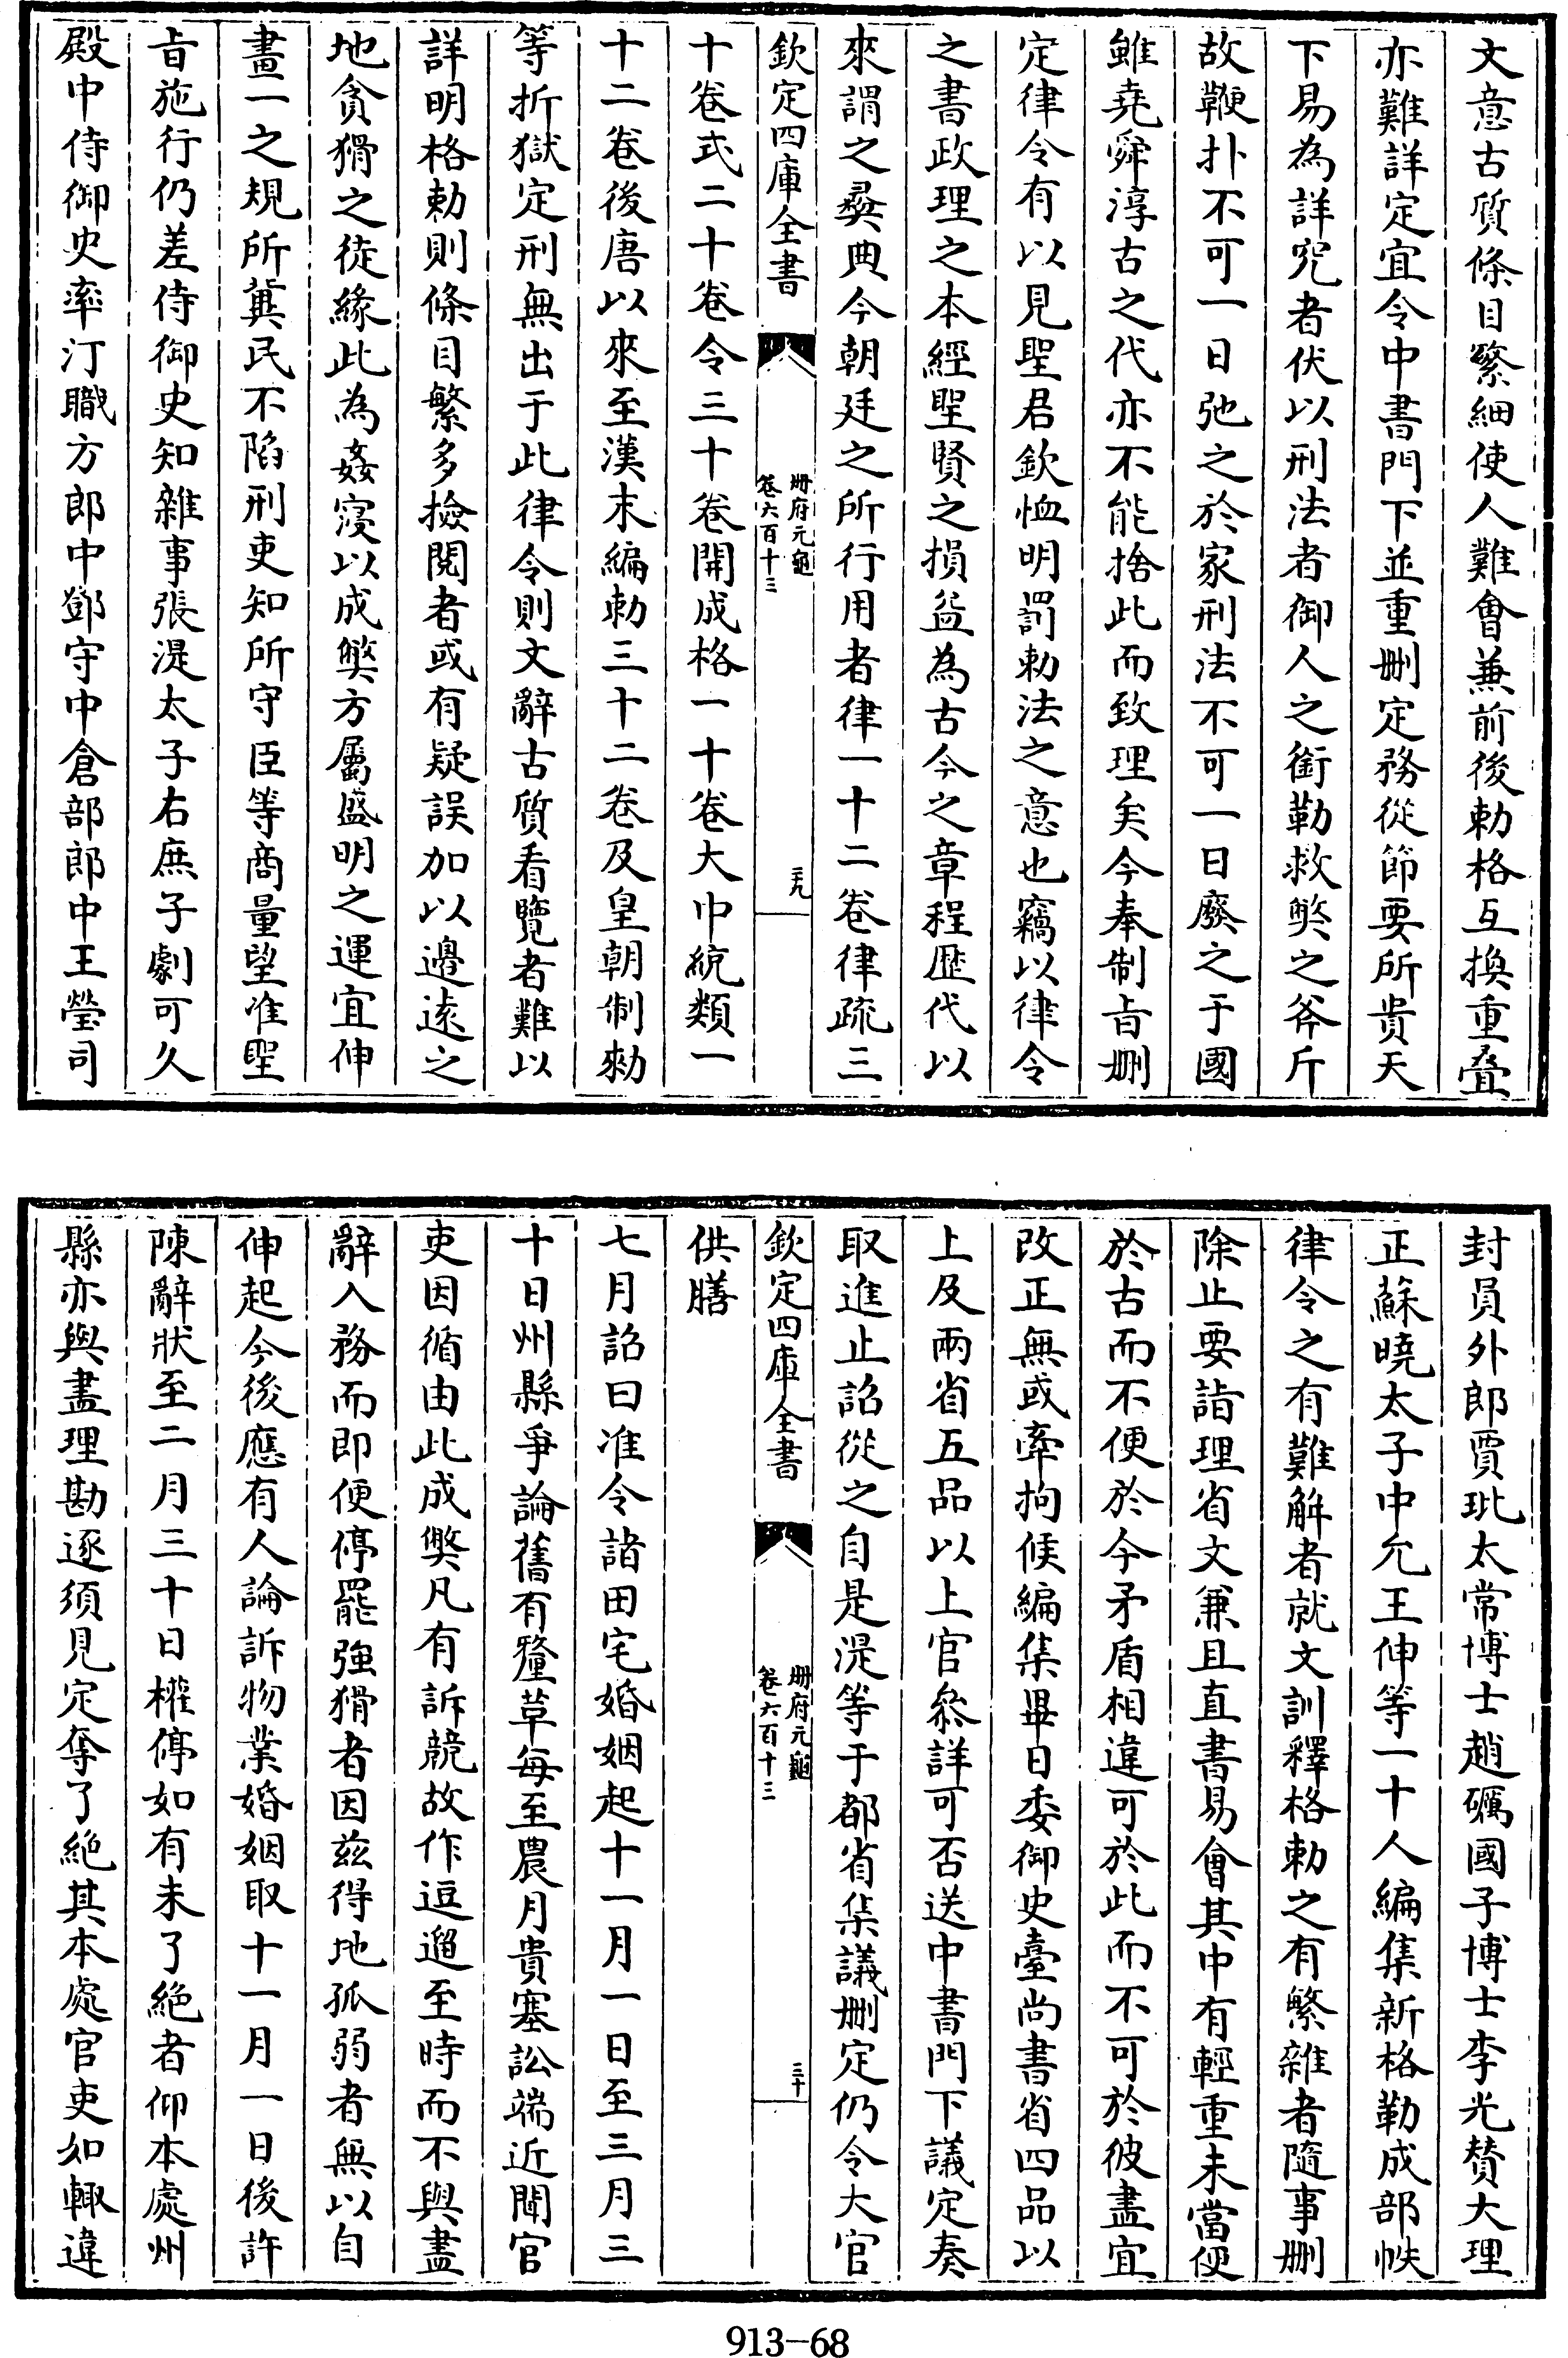 文意古質條目繁細使人難會兼前後勅格互換重疊
亦難詳定宜令中書門下並重刪定務從節要所貴天
下易為詳究者伏以刑法者御人之銜勒救獘之斧斤
故鞭扑不可一日弛之於家刑法不可一日廢之于國
雖堯舜淳古之代亦不能捨此而致理矣今奉制旨刪
定律令有以見聖君欽恤明罰勅法之意也竊以律令
之書政理之本經聖賢之損益為古今之章程歴代以
來謂之彛典今朝廷之所行用者律一十二卷律疏三
欽定四庫全書
冊府元龜
卷六百十三
二九
十卷式二十卷令三十卷開成格一十卷大中統類一
十二卷後唐以來至漢末編勅三十二卷及皇朝制勅
等折獄定刑無出于此律令則文辭古質看覽者難以
詳明格勅則條目繁多撿閱者或有疑誤加以邊遠之
地貪猾之徒緣此為姦寖以成獘方屬盛明之運宜伸
畫一之規所冀民不陷刑吏知所守臣等商量望准聖
旨施行仍差侍御史知雜事張湜太子右庶子劇可久
殿中侍御史率汀職方郎中鄧守中倉部郎中王瑩司
封員外郎賈玭太常博士趙礪國子博士李光贊大理
正蘇曉太子中允王伸等一十人編集新格勒成部帙
律令之有難解者就文訓釋格勅之有繁雜者隨事刪
除止要詣理省文兼且直書易會其中有輕重未當便
於古而不便於今矛盾相違可於此而不可於彼盡宜
改正無或牽拘候編集畢日委御史臺尚書省四品以
上及兩省五品以上官叅詳可否送中書門下議定奏
取進止詔從之自是湜等于都省集議刪定仍令大官
欽定四庫全書
冊府元龜
卷六百十三
三十
供膳
七月詔曰准令諸田宅婚姻起十一月一日至三月三
十日州縣爭論舊有釐革每至農月貴塞訟端近聞官
吏因循由此成獘凡有訴競故作逗遛至時而不與盡
辭入務而即便停罷強猾者因兹得地孤弱者無以自
伸起今後應有人論訴物業婚姻取十一月一日後許
陳辭狀至二月三十日權停如有未了絶者仰本處州
縣亦與盡理勘逐須見定奪了絶其本處官吏如輙違
913-68